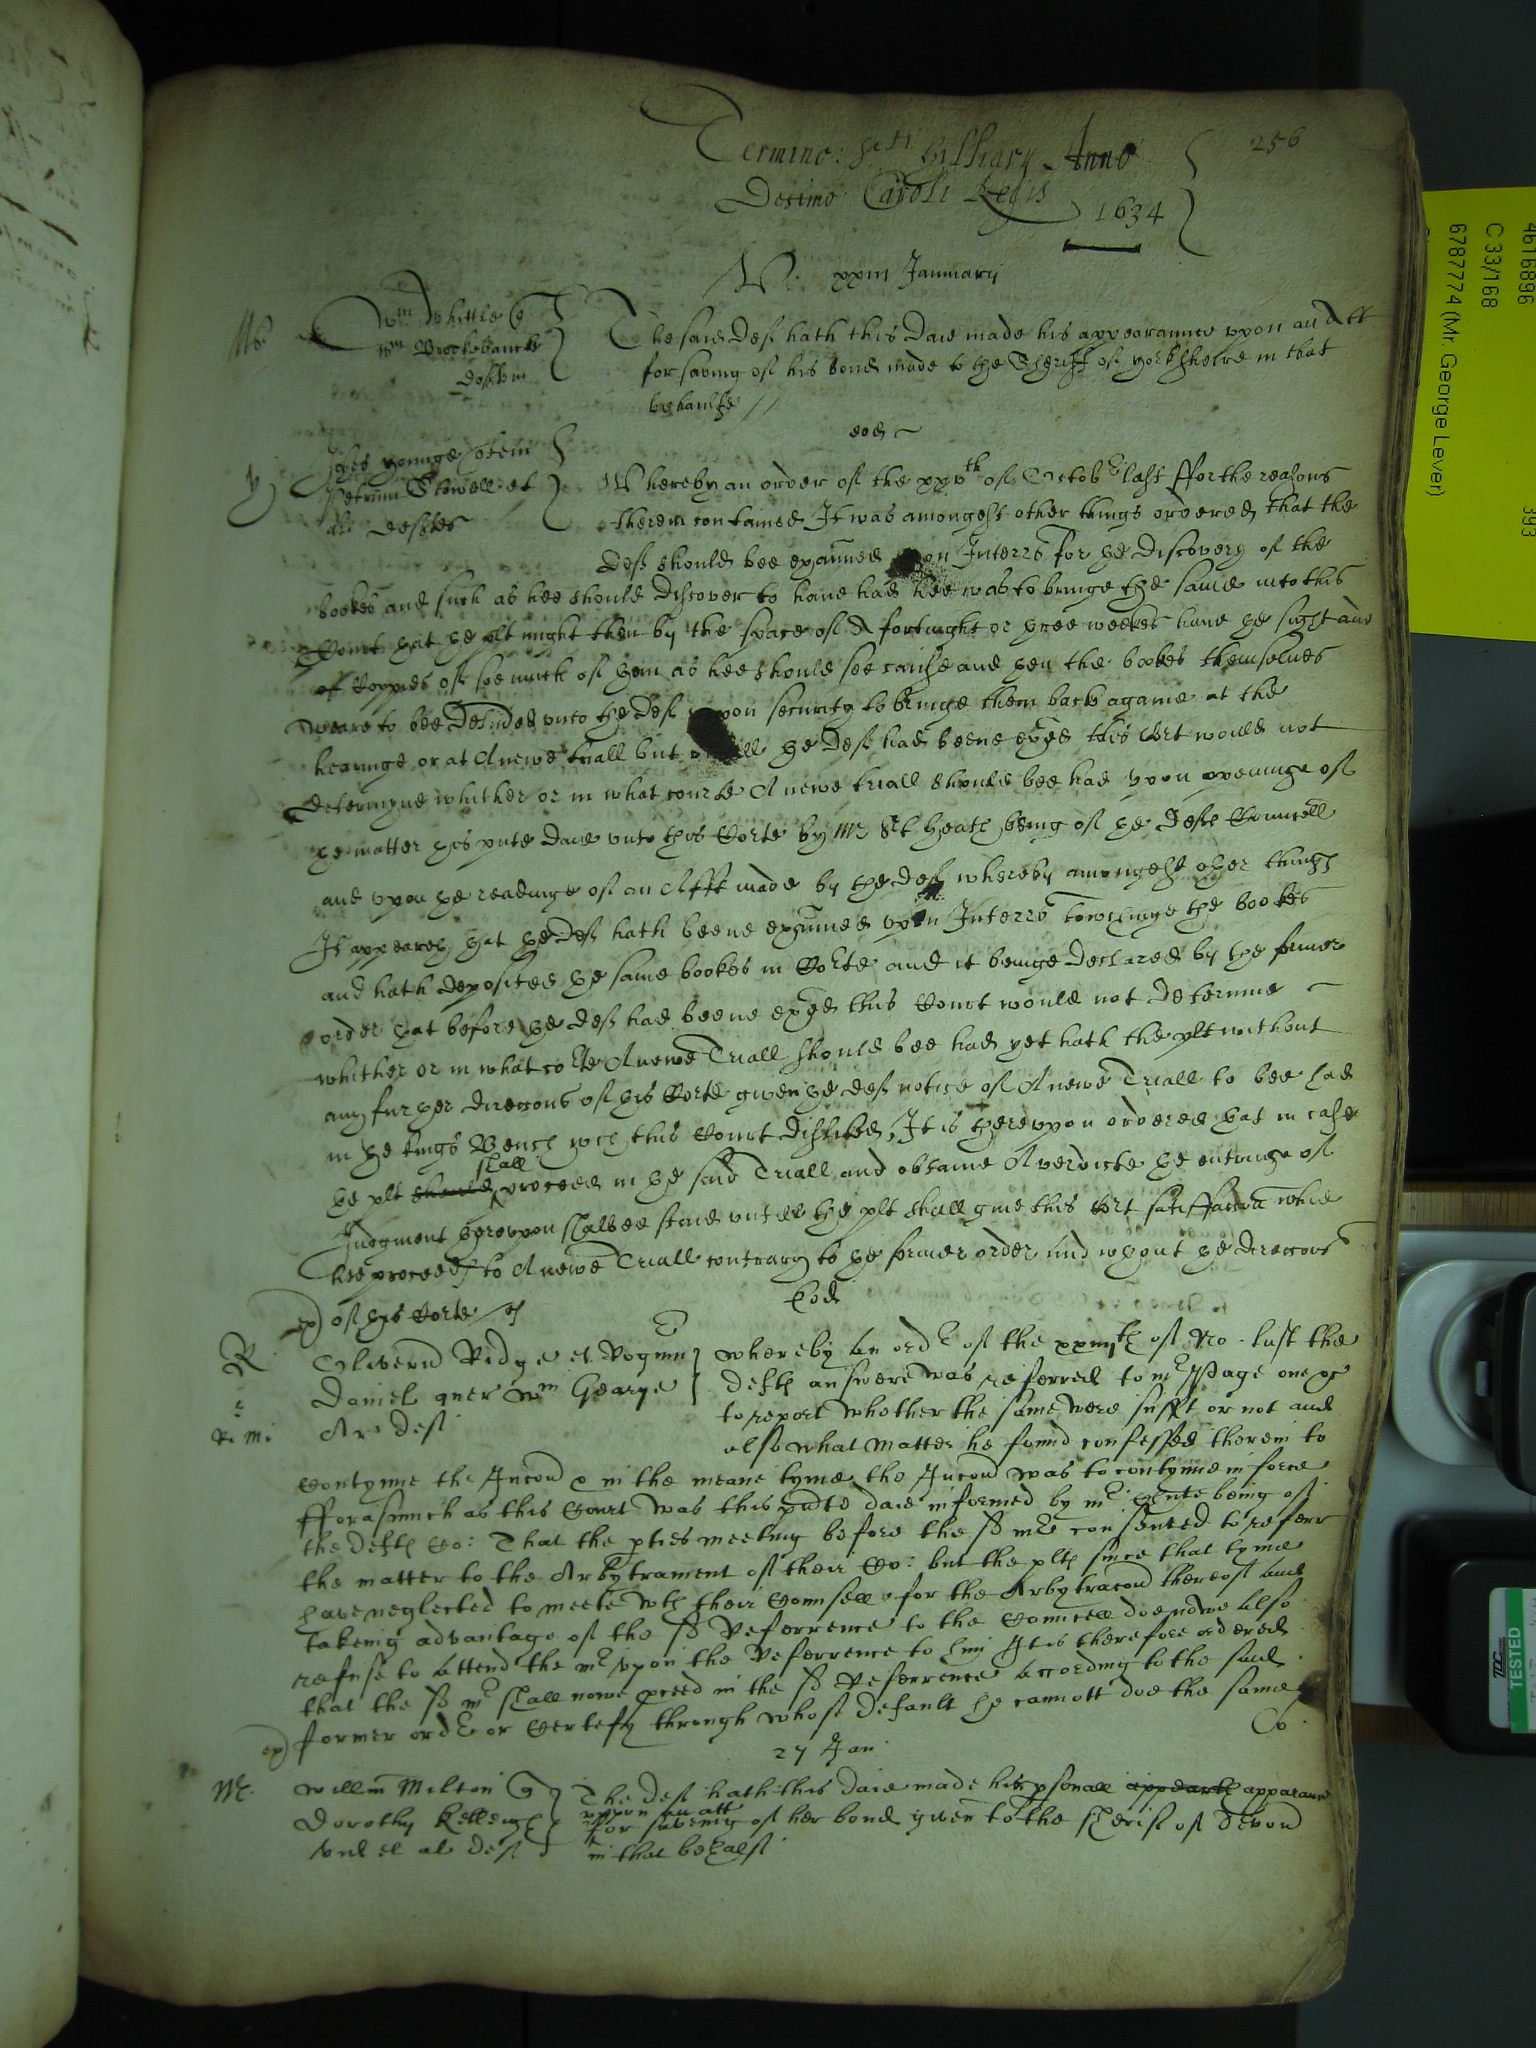 256
Termino: Scti Hillary Anno
Decimo Caroli Regis
1634
xxiii January
Wm Whittle
Wm Brockbancke
deft
The said deft hath this daie made his appearannce vpon an Att
for saving of his bond made to the Sheriff of Yorksheire in that
behaulfe //
eod
Johes Younge
Petrum Stowell et
al deftes
Whereby an order of the xxvth of Octob last ffor the reasons
therein contained It was amongest other things ordered that the
deft should bee exam̃ed on Interr̃ for ye discovery of the
bookes and such as hee should discover to haue had hee was to bringe the same into this
Court yat ye plt might then by the space of A fortnight or three weekes haue ye sight and
of Coppies of soe much of them as hee should see cause and then the bookes themselues
weare to bee del̃ed vnto the deft vpon security to bringe them back againe at the
hearinge or at A newe triall but ye deft had beene exãed this Cort would not
determyne whither or in what courte A newe triall should bee had Vpon openinge of
ye matter this pñte daie vnto this Corte by Mr Heath being of ye defts Councell
and vpon ye readinge of an Afft made by the deft whereby amongest other things
It appeareth yat ye deft hath beene exam̃ed vpon Interr̃ towchinge the bookes
and hath deposited ye same bookes in Corte and it beinge declared by the former
order yat before ye deft had beene exãed this Court would not determine
whither or in what corte A newe Triall should bee had yet hath the plt without
any further direccons of this Corte given ye deft notice of A newe Triall to bee had
in ye kings Bench wch this Court disliked, It is therevpon ordered yat in case
shall
ye plt should proceed in ye said Triall and obtaine A verdicte ye entringe of
Judgment therevpon shalbee staid vntill the plt shall giue this Cort satisfaccon whie
hee proceeds to A newe Triall contrary to ye former order and wthout ye direccons
of this Corte
Eod
R
Daniel Wm Georye
Ar deft
whereby an ordr of the xxiiijth of No last the
defts answere was referred to mr Page one &c
to report whether the same were sufft or not and
also what matter he found confessed therein to
contynue the Iniuncon & in the meane tyme the Iniuncon was to contynue in force
fforasmuch as this Court was this pñte daie informed by mr being of
the defts Co: That the pties meeting before the sd mr consented to referr
the matter to the Arbytrament of their Co: but the plts since that tyme
have neglected to meete wth their Counsell for the Arbytracon thereof and
takeing advantage of the sd Referrence to the Councell doe nowe also
refuse to attend the mr vpon the Referrence to him It is therefore ordered
that the sd mr shall nowe pceed in the sd Referrence according to the said
former ordr or Certefy through whose default he cannott doe the same
27 Jan
Willm Milton
Dorothy
vid et al deft
The deft hath this daie made his psonall appearce apparaunc
vppon an att
for saveing of her bond given to the Sherif of Devon
in that behalf
4616896
C 33/168
6787774 (Mr. George Lever)
393
TESTED